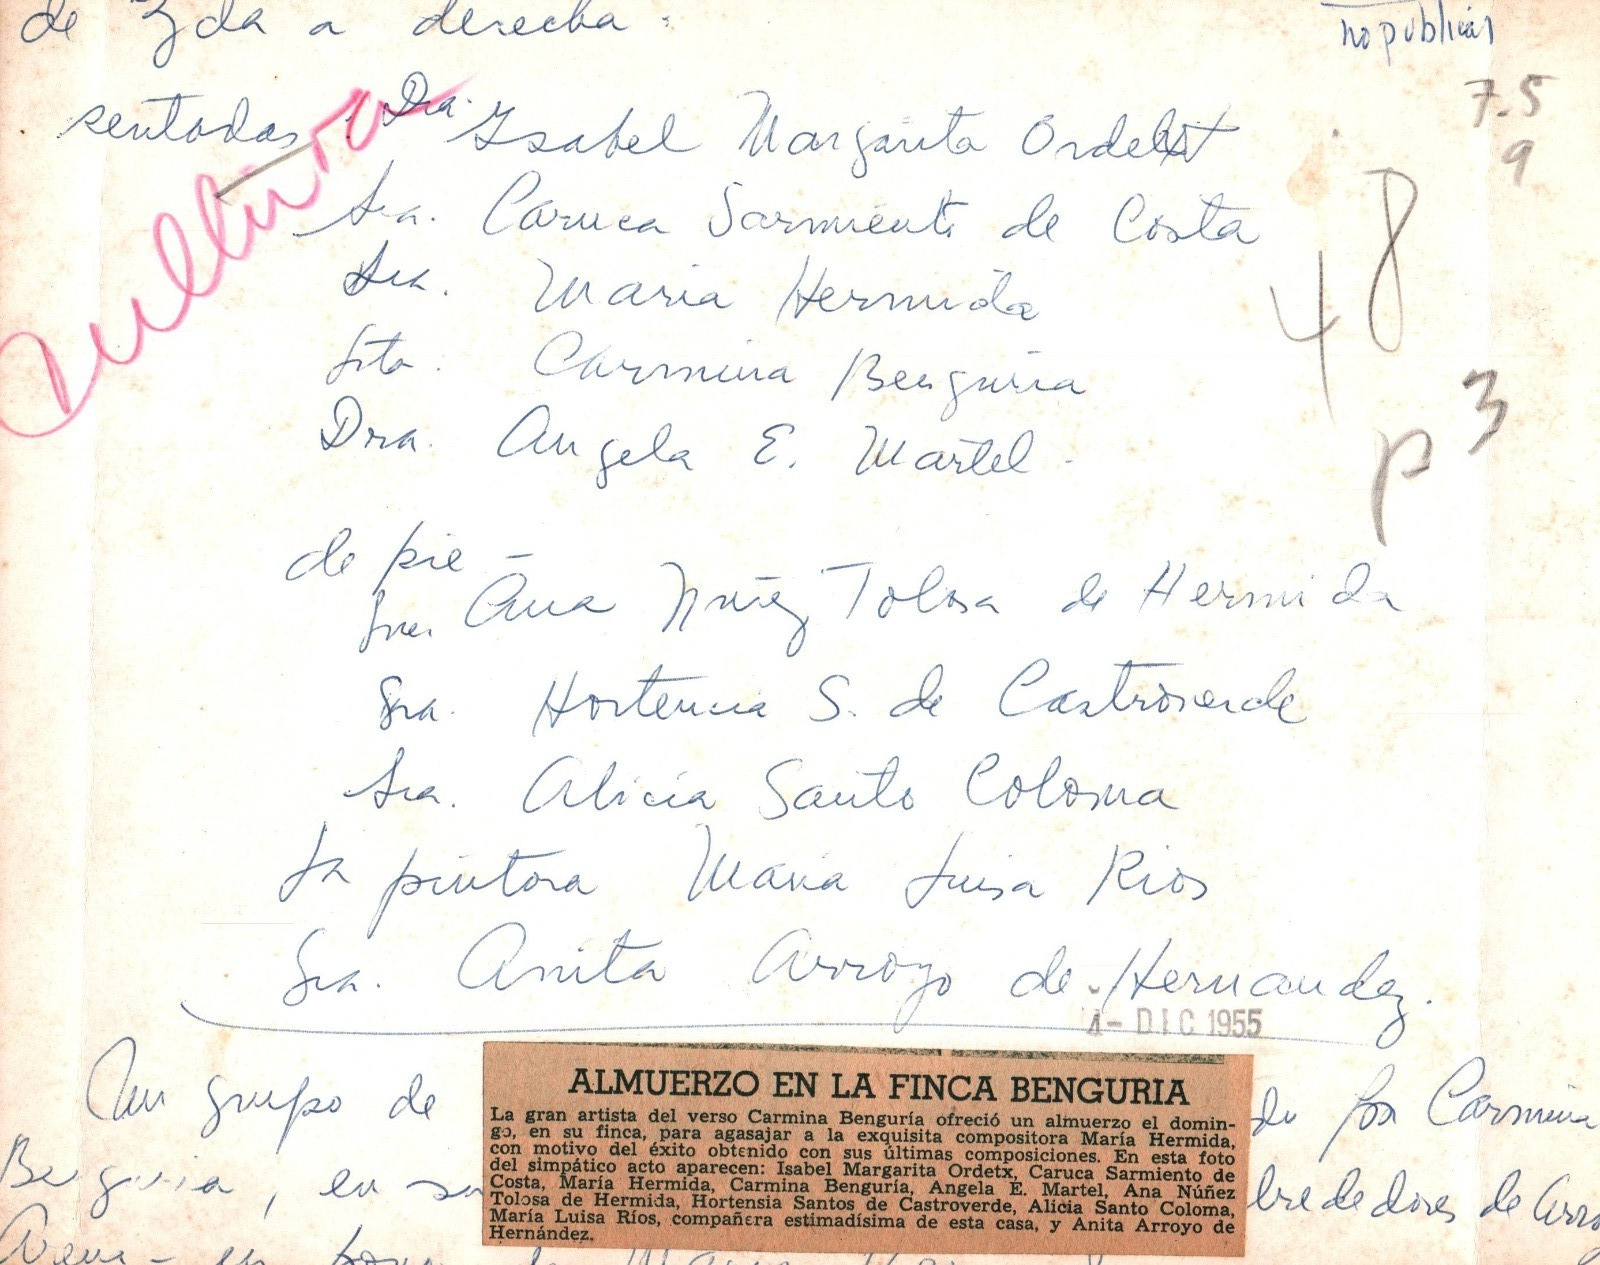 de Izda a derecha:
no publicar
7.5
9
sentadas: Dra. Isabel Margarita Ordetx
Cultura
Sra. Caruca Sarmiento de Costa
48
Sra. Maria Hermida
Srta. Carmina Benguria
p 3
Dra. Angela E. Martel.
de pie -
Sra. Ana Núñez Tolosa de Hermida
Sra. Hortencia S. de Castroverde
Sra. Alicia Santo Coloma
La pintora Maria Luisa Rios
Sra. Anita Arroyo de Hernandez.
4- DIC 1955
Un grupo de
por Carmina
Benguria, en su
de
ALMUERZO EN LA FINCA BENGURIA
La gran artista del verso Carmina Benguría ofreció un almuerzo el domin-
go, en su finca, para agasajar a la exquisita compositora María Hermida,
con motivo del éxito obtenido con sus últimas composiciones. En esta foto
del simpático acto aparecen: Isabel Margarita Ordetx, Caruca Sarmiento de
Costa, María Hermida, Carmina Benguría, Angela E. Martel, Ana Núñez
Tolosa de Hermida, Hortensia Santos de Castroverde, Alicia Santo Coloma,
María Luisa Ríos, compañera estimadísima de esta casa, y Anita Arroyo de
Hernández.